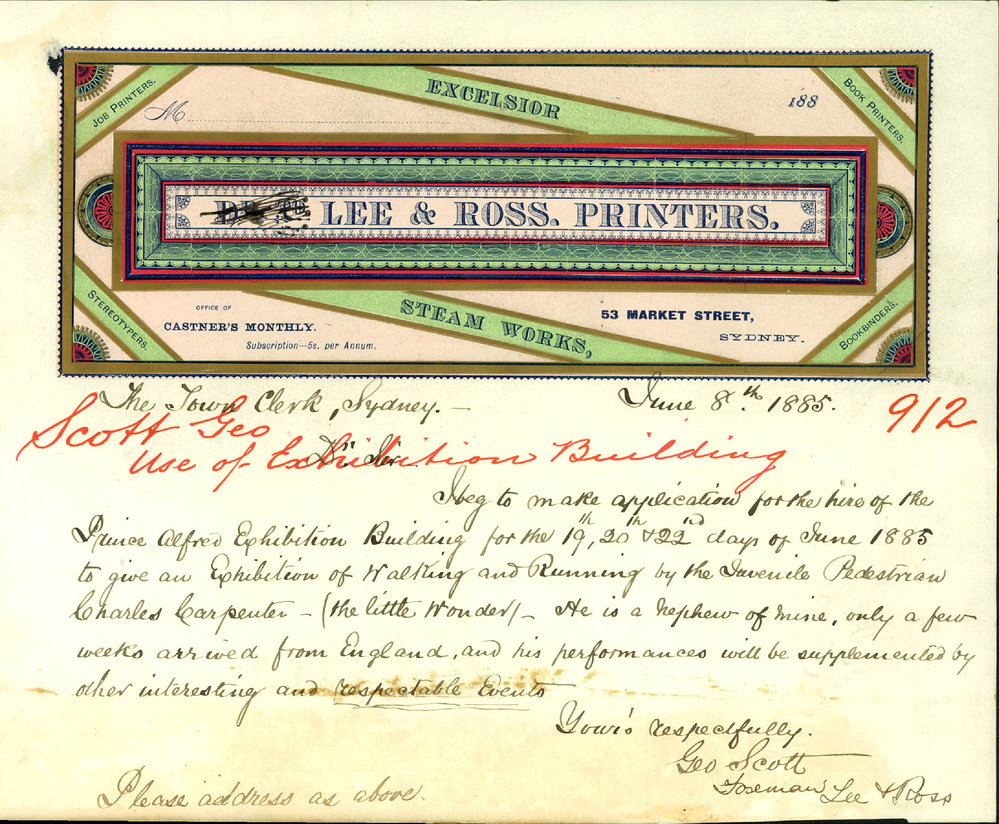 JOB PRINTERS.
EXCELSIOR
BOOK PRINTERS.
M
188
LEE & ROSS. PRINTERS.
STEREOTYPERS.
OFFICE OF
CASTNER'S MONTHLY.
Subscription—5s. per Annum.
STEAM WORKS,
53 MARKET STREET,
SYDNEY.
BOOKBINDERS.
The Town Clerk, Sydney. — June 8th 1885.
912
Scott Geo
Use of Exhibition Building
Dr. Sir.
I beg to make application for the hire of the
Prince Alfred Exhibition Building for the 19th, 20th & 22nd days of June 1885
to give an Exhibition of Walking and Running by the Juvenile Pedestrian
Charles Carpenter — (the little Wonder) — He is a nephew of mine, only a few
weeks arrived from England, and his performances will be supplemented by
other interesting and respectable Events
Your's respectfully.
Geo Scott
Foreman Lee & Ross
Please address as above.